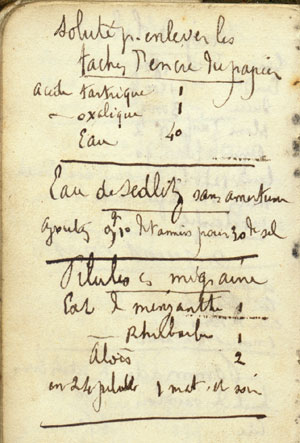 Soluté p. enlever les
taches d'encre du papier
acide tartrique 1
— oxalique 1
Eau 40
Eau de Sedlitz sans amertume
ajoutez 0,10 de tannin pour 30 de sel
Pilules cs migraine
Ext de menyanthe 1
— Rhubarbe 1
Aloès 2
en 24 pilules 1 mat. et soir